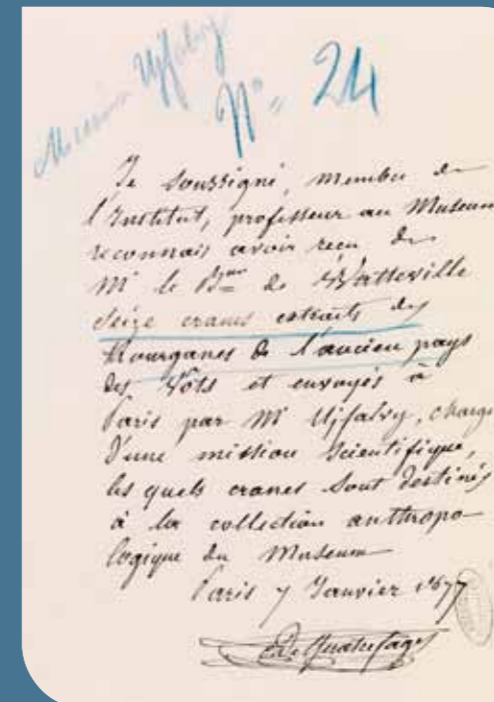 Mission Ujfalvy
N° 24
Je soussigné, membre de
l'Institut, professeur au Museum
reconnais avoir recu de
Mr le Bon de Watteville
Seize cranes extraits des
Kourganes de l'ancien pays
des Vôts et envoyés à
Paris par Mr Ujfalvy, chargé
d'une mission scientifique,
les quels cranes sont destinés
à la collection anthropo-
logique du Museum
Paris 7 Janvier 1877
De Quatrefages